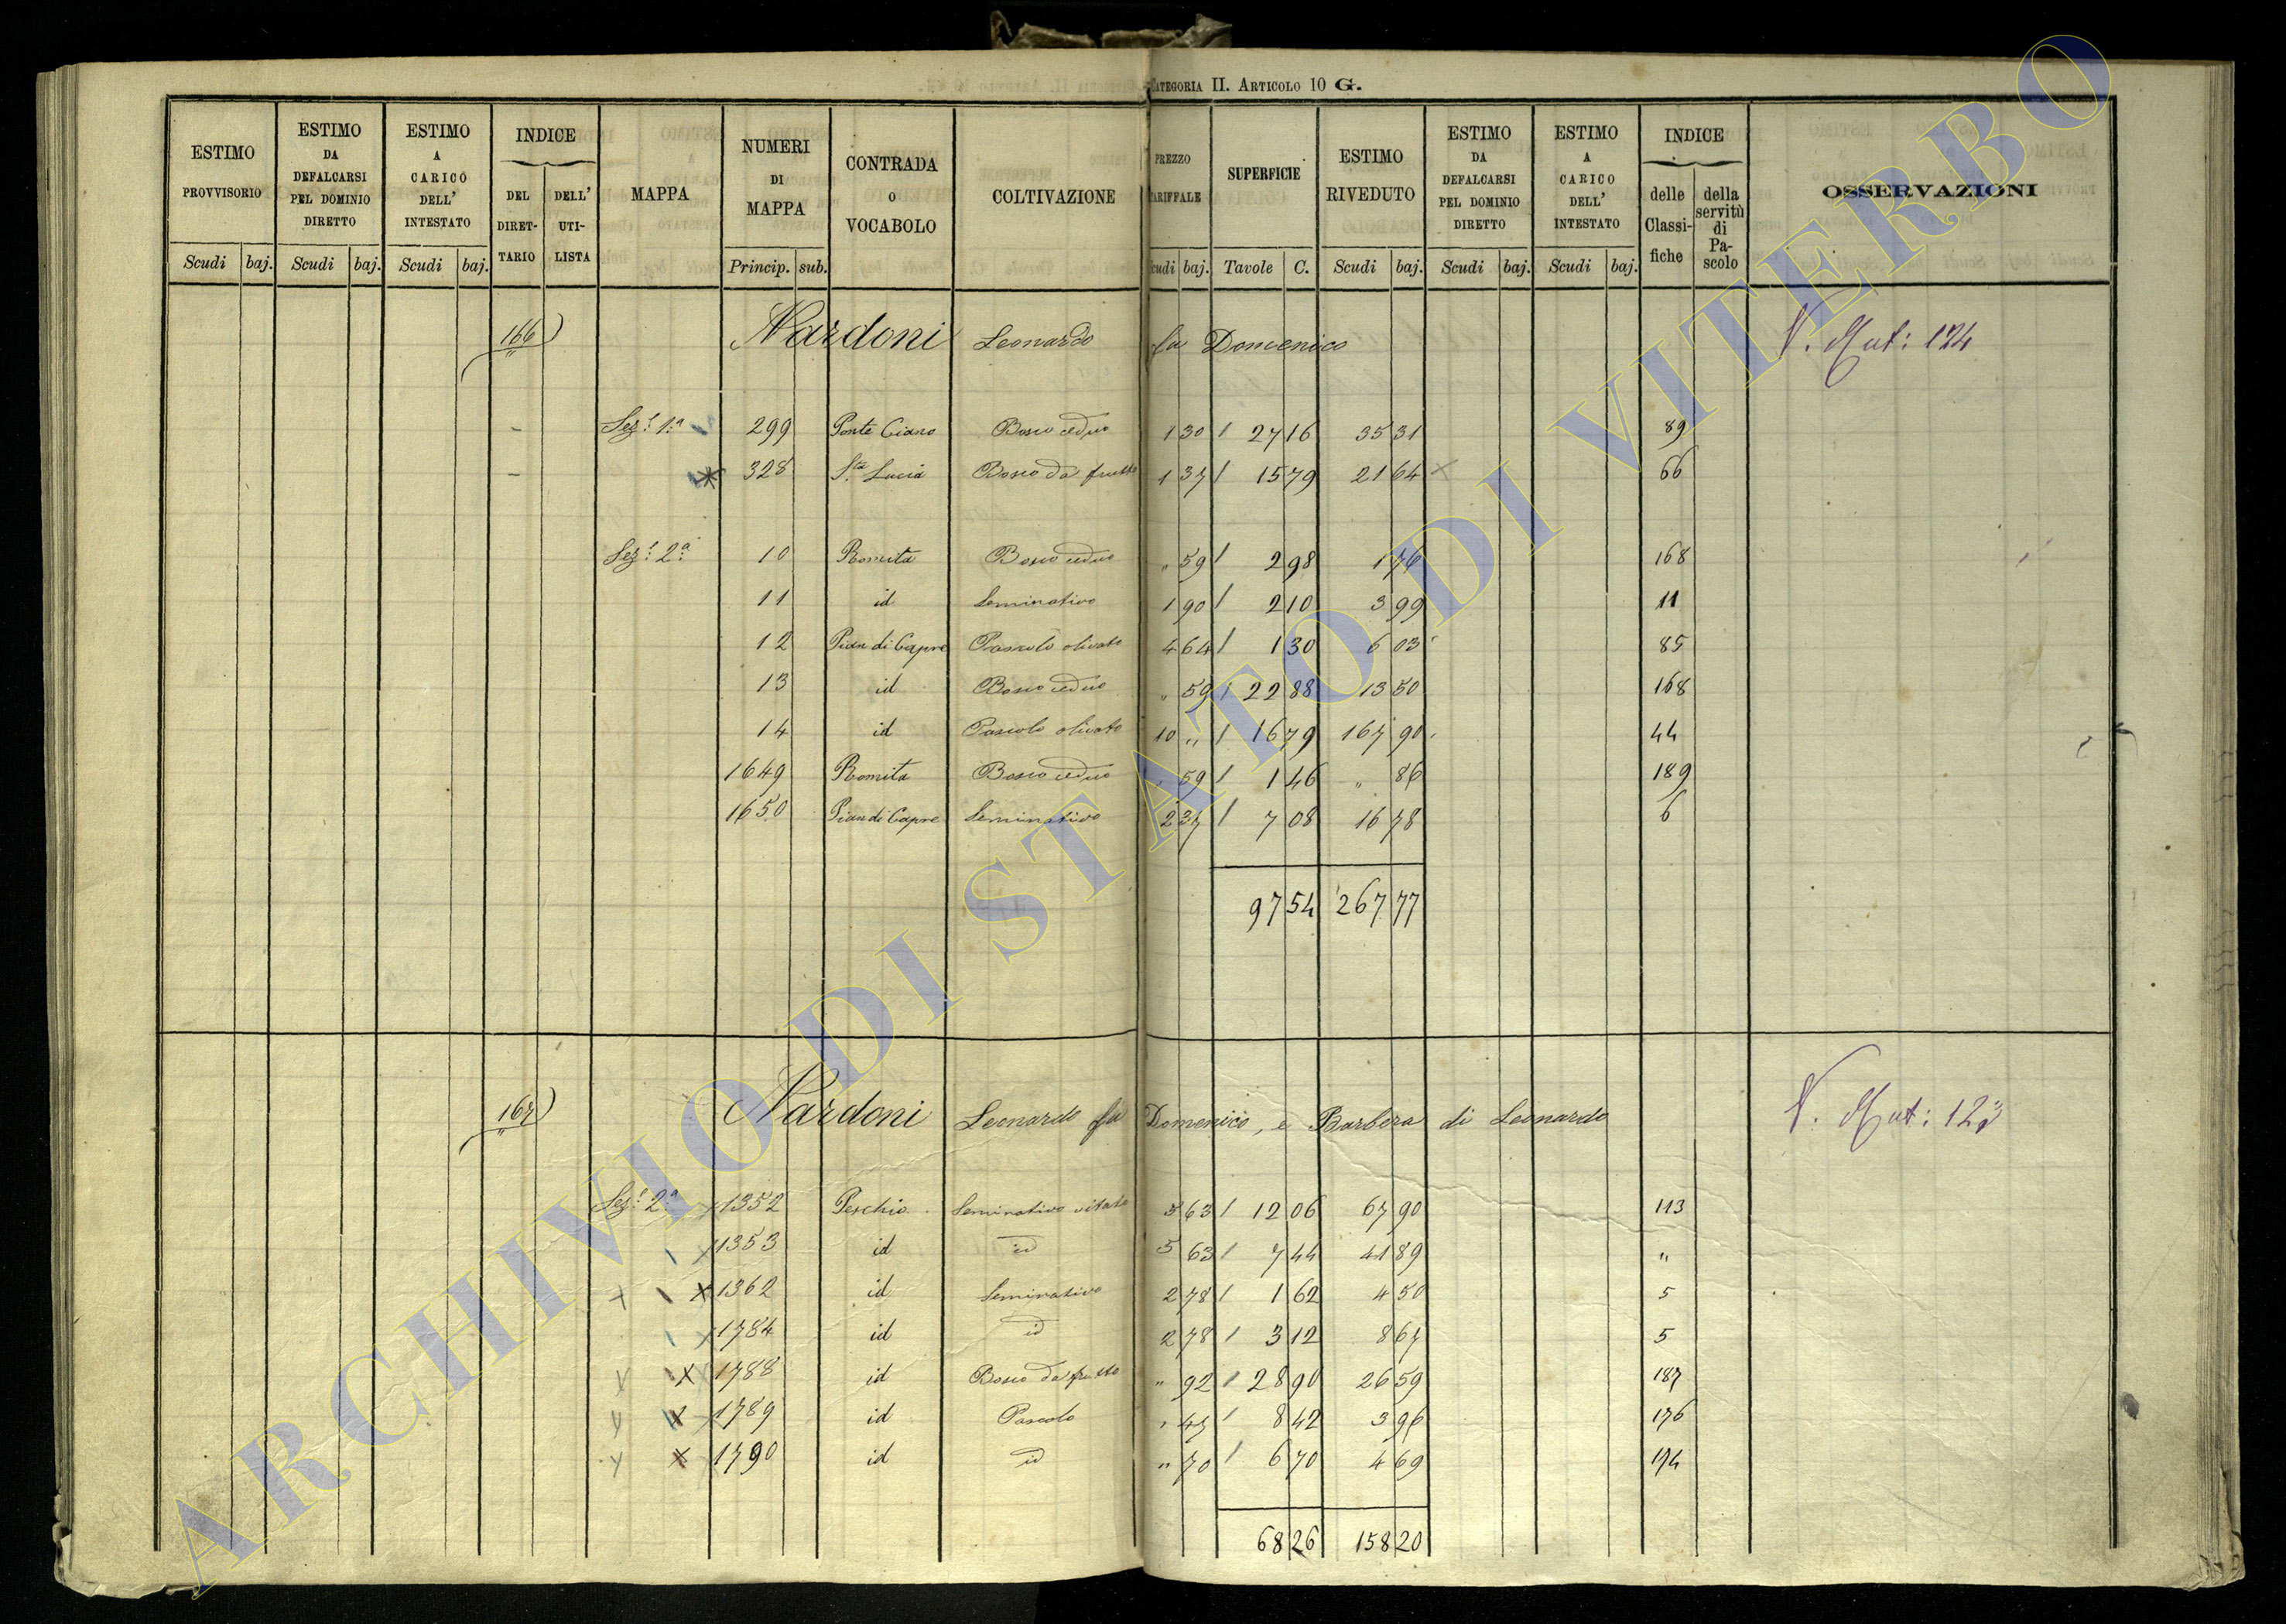 CATEGORIA II. ARTICOLO 10 G.
ESTIMO PROVVISORIO | ESTIMO DA DEFALCARSI PEL DOMINIO DIRETTO | ESTIMO A CARICO DELL' INTESTATO | INDICE DEL DIRET-TARIO | DELL' UTI-LISTA | MAPPA | NUMERI DI MAPPA | CONTRADA O VOCABOLO | COLTIVAZIONE | PREZZO TARIFFALE | SUPERFICIE | ESTIMO RIVEDUTO | ESTIMO DA DEFALCARSI PEL DOMINIO DIRETTO | ESTIMO A CARICO DELL' INTESTATO | INDICE delle Classi-fiche | della servitù di Pa-scolo | OSSERVAZIONI
Scudi baj. | Scudi baj. | Scudi baj. | Princip. sub. | Scudi baj. | Tavole C. | Scudi baj. | Scudi baj. | Scudi baj.
166) Nardoni Leonardo fu Domenico V. Mat: 124
Sez.e 1.a 299 Ponte Ciano Bosco ceduo 1 30 / 27 16 35 31 89
328 S.ta Lucia Bosco da frutto 1 37 / 15 79 21 64 66
Sez.e 2.a 10 Romita Bosco ceduo " 59 / 2 98 1 76 168
11 id Seminativo 1 90 / 2 10 3 99 11
12 Pian di Capre Pascolo olivato 4 64 / 1 30 6 03 85
13 id Bosco ceduo " 59 / 22 88 13 50 168
14 id Pascolo olivato 10 " / 16 79 167 90 44
1649 Romita Bosco ceduo " 59 / 1 46 " 86 189
1650 Pian di Capre Seminativo 2 37 / 7 08 16 78 6
97 54 267 77
167) Nardoni Leonardo fu Domenico, e Barbera di Leonardo V. Mat: 123
Sez.e 2.a 1352 Peschio Seminativo vitato 5 63 / 12 06 67 90 113
1353 id id 5 63 / 7 44 41 89 "
1362 id Seminativo 2 78 / 1 62 4 50 5
1784 id id 2 78 / 3 12 8 67 5
1788 id Bosco da frutto " 92 / 28 90 26 59 187
1789 id Pascolo " 47 / 8 42 3 96 176
1790 id id " 70 / 6 70 4 69 194
68 26 158 20
ARCHIVIO DI STATO DI VITERBO